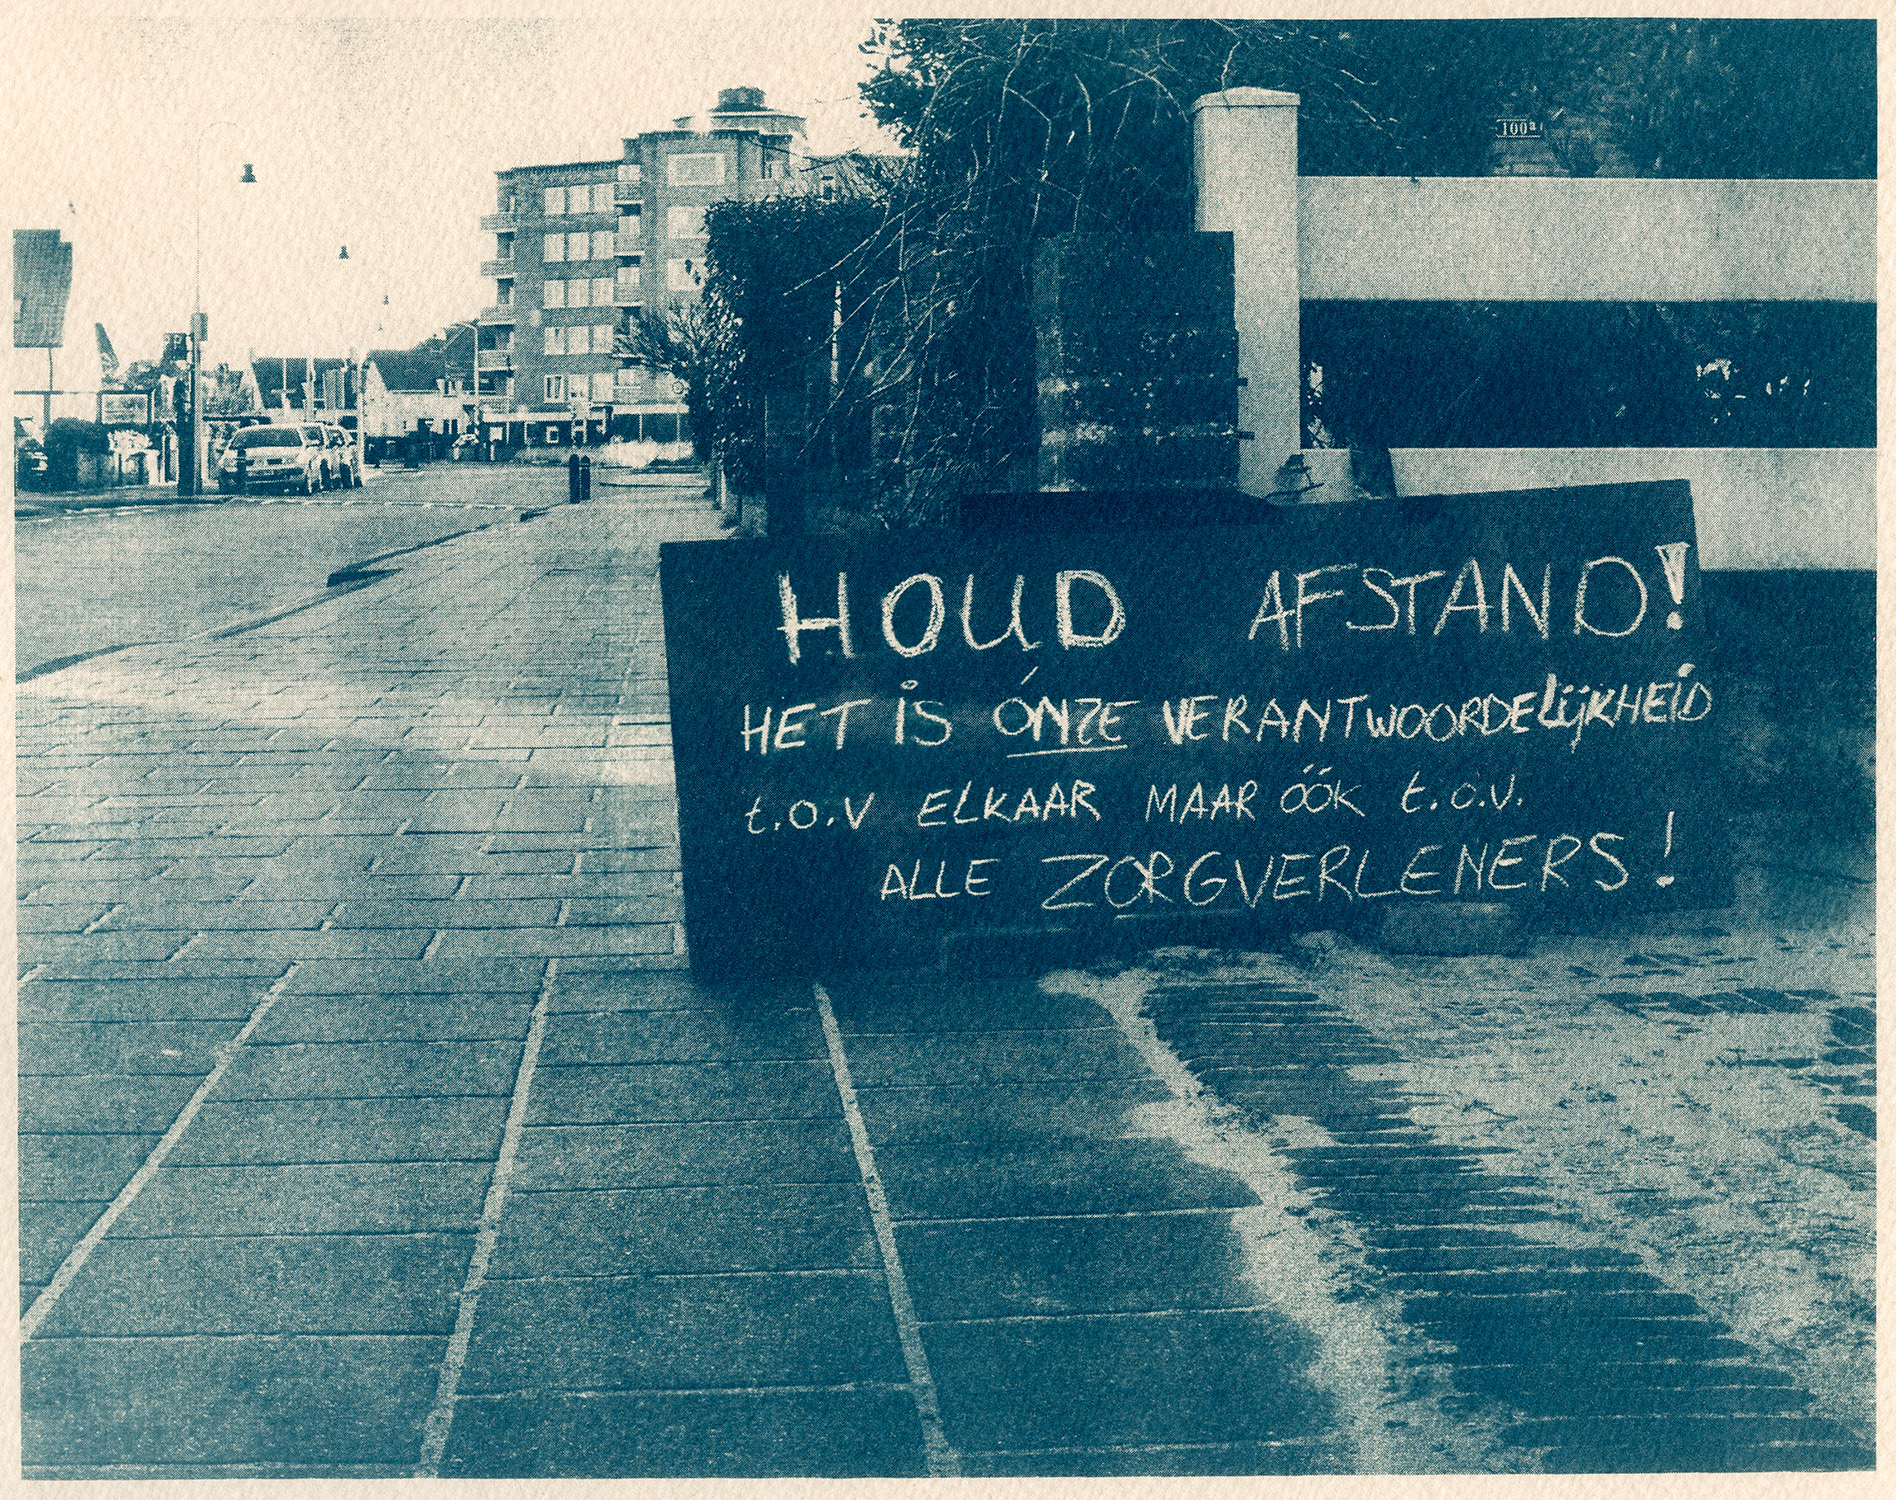 100a
HOUD AFSTAND!
HET iS ÓNZE VERANTWOORDELijKHEiD
t.o.v ELKAAR MAAR ÓÓK t.o.v.
ALLE ZORGVERLENERS!